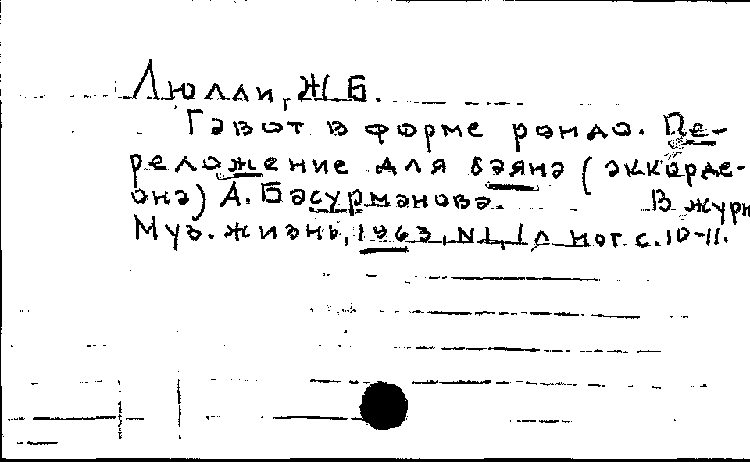 Люлли, Ж.Б.
Гавот в форме рондо. Пе-
реложение для баяна (аккорде-
она) А. Басурманова. В журн
Муз. жизнь, 1963, N1, 1л нот с. 10-11.